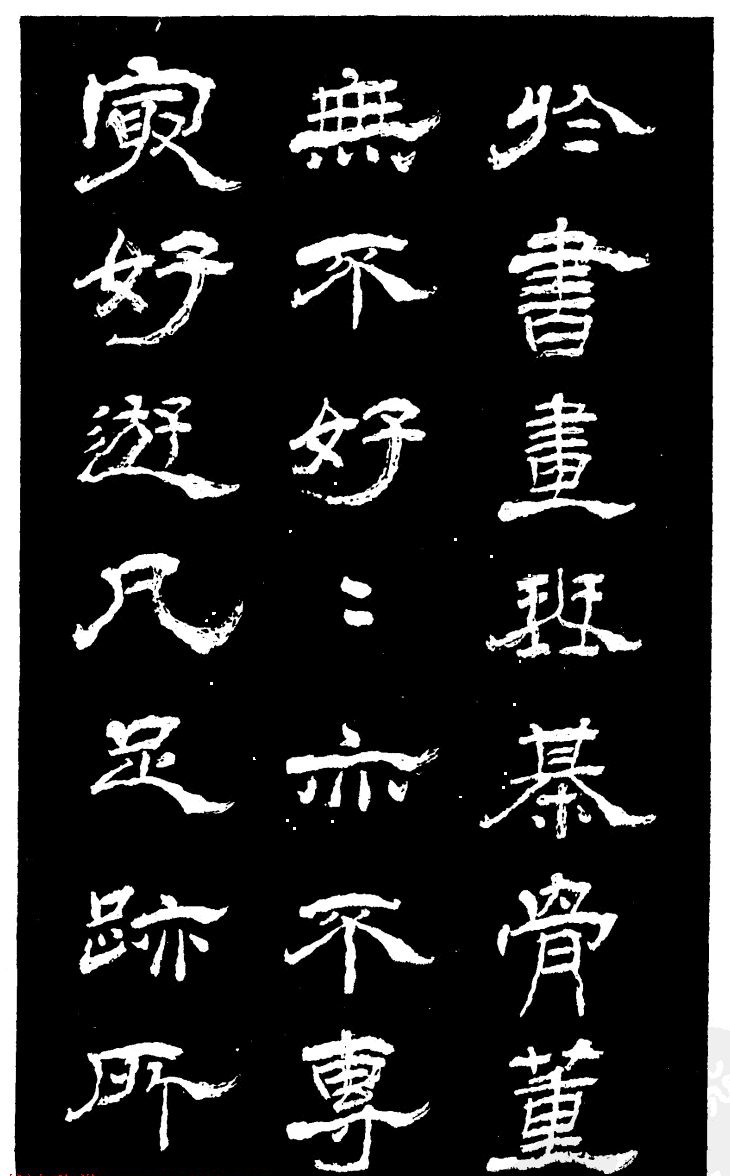 於書畫斑綦骨董
無不好〻亦不專
㝡好遊凡足跡所